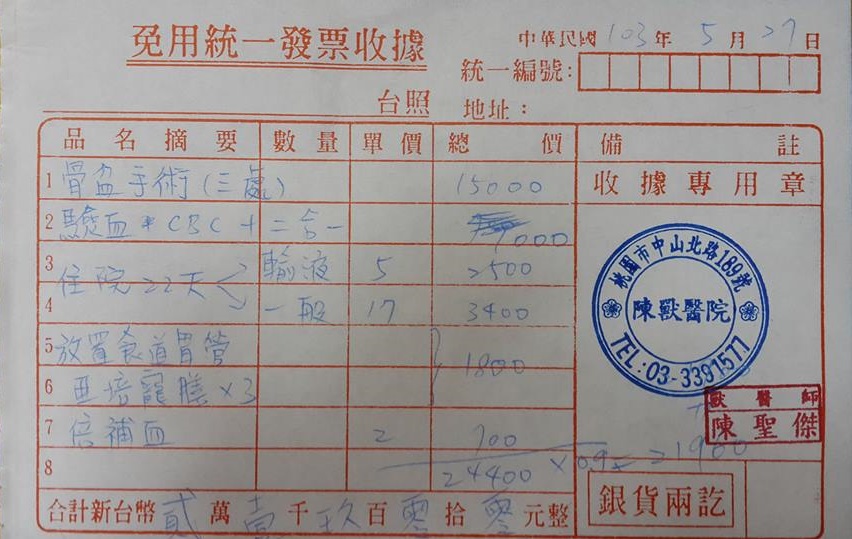 免用統一發票收據
中華民國 103 年 5 月 27 日
統一編號:
台照 地址:
品名摘要 數量 單價 總價 備註
1 骨盆手術(三處) 15000 收據專用章
2 驗血*CBC+二合一 1000
3 住院22天 輸液 5 2500
4 一般 17 3400
5 放置食道胃管 1800
6 亞培寵膳×3
7 倍補血 2 700
8 24400 × 0.9 = 21900
合計新台幣 貳 萬 壹 千 玖 百 零 拾 零 元整
銀貨兩訖
桃園市中山北路189號
陳獸醫院
TEL:03-3391577
獸醫師
陳聖傑